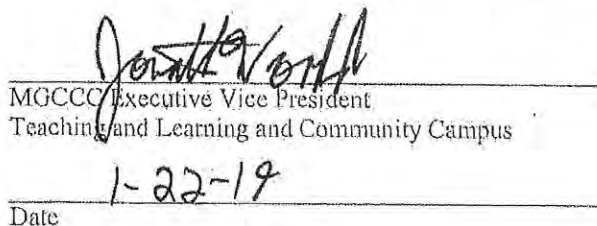 MGCCC Executive Vice President
Teaching and Learning and Community Campus
1-22-19
Date